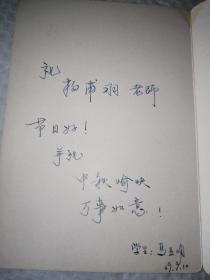 祝
杨甫翔老师
节日好！
并祝
中秋愉快
万事如意！
学生：马
9.10